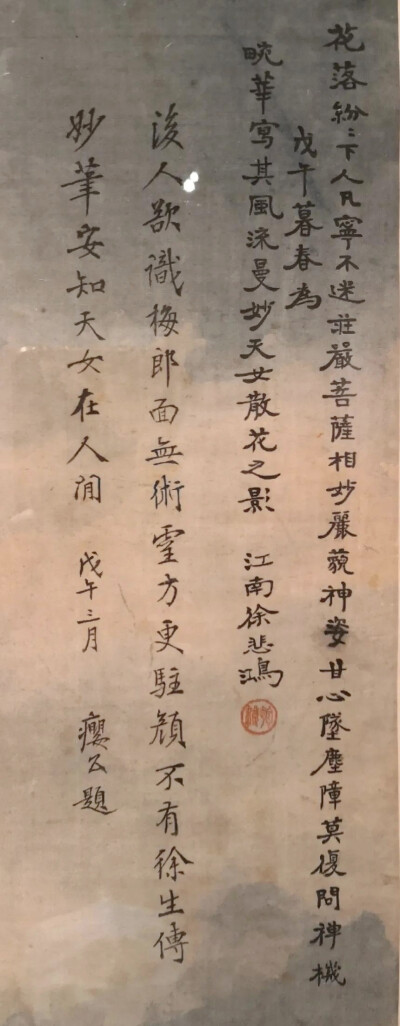 花落紛〻下人凡寧不迷莊嚴菩薩相妙麗藐神姿甘心墜塵障莫復問神機
戊午暮春為
畹華寫其風流曼妙天女散花之影　江南徐悲鴻
後人欲識梅郎面無術靈方更駐顏不有徐生傳
妙筆安知天女在人間　戊午三月　癭公題